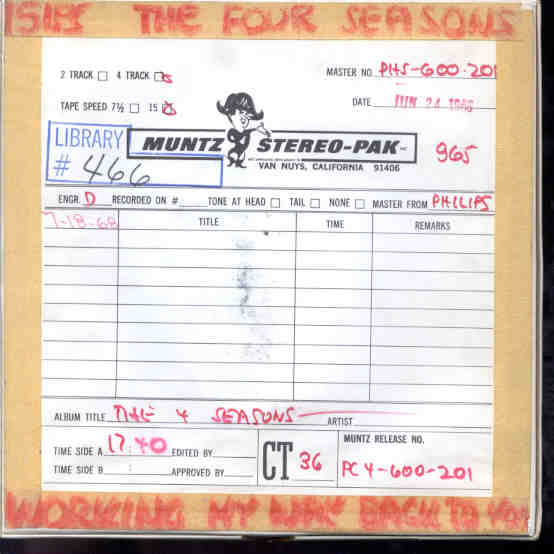 15IPS THE FOUR SEASONS
2 TRACK 4 TRACK
MASTER NO. PHS-600-201
TAPE SPEED 7½ 15
DATE JUN 24 1966
LIBRARY # 466
MUNTZ STEREO-PAK INC
VAN NUYS, CALIFORNIA 91406
965
ENGR. D RECORDED ON # TONE AT HEAD TAIL NONE MASTER FROM PHILIPS
7-18-68
TITLE TIME REMARKS
ALBUM TITLE THE 4 SEASONS ARTIST
TIME SIDE A 17:40 EDITED BY
TIME SIDE B : APPROVED BY
CT 36
MUNTZ RELEASE NO.
PC4-600-201
WORKING MY WAY BACK TO YOU